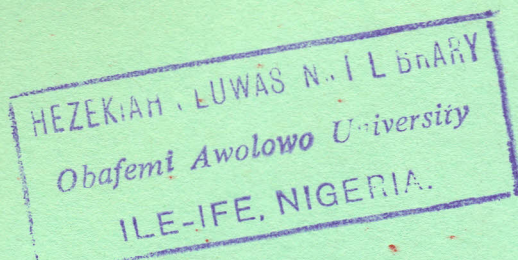 HEZEKIAH LIBRARY
Obafemi Awolowo University
ILE-IFE, NIGERIA.